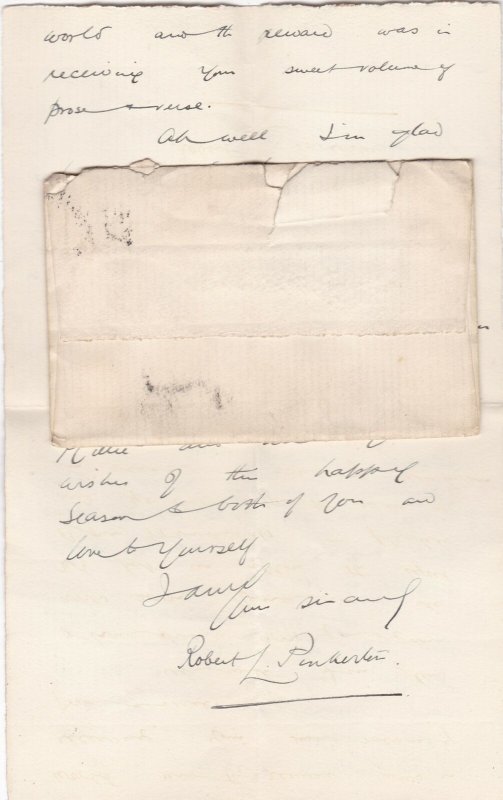 world and th reward was in
receiving your sweet volume of
prose & verse.
Ah well I'm glad
wishes of the happy
Season to both of you and
love to Yourself
I am
Yours sincerely
Robert L. Pinkerton.